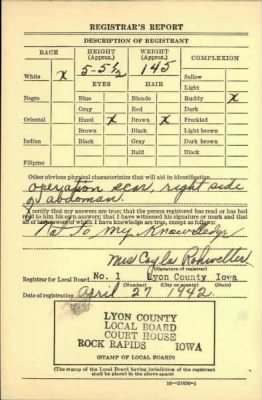 REGISTRAR'S REPORT
DESCRIPTION OF REGISTRANT
RACE HEIGHT (Approx.) WEIGHT (Approx.) COMPLEXION
5-5½ 145
White X Sallow
EYES HAIR Light
Negro Blue Blonde Ruddy X
Gray Red Dark
Oriental Hazel X Brown X Freckled
Brown Black Light brown
Indian Black Gray Dark brown
Bald Black
Filipino
Other obvious physical characteristics that will aid in identification
operation scar, right side
abdoman.
I certify that my answers are true; that the person registered has read or has had
read to him his own answers; that I have witnessed his signature or mark and that
all of his answers of which I have knowledge are true, except as follows:
to My Knowledge
Mrs
(Signature of registrar)
Registrar for Local Board No. 1 Lyon County Iowa
(Number) (City or county) (State)
Date of registration April 27 1942.
LYON COUNTY
LOCAL BOARD
COURT HOUSE
ROCK RAPIDS IOWA
(STAMP OF LOCAL BOARD)
(The stamp of the Local Board having jurisdiction of the registrant
shall be placed in the above space)